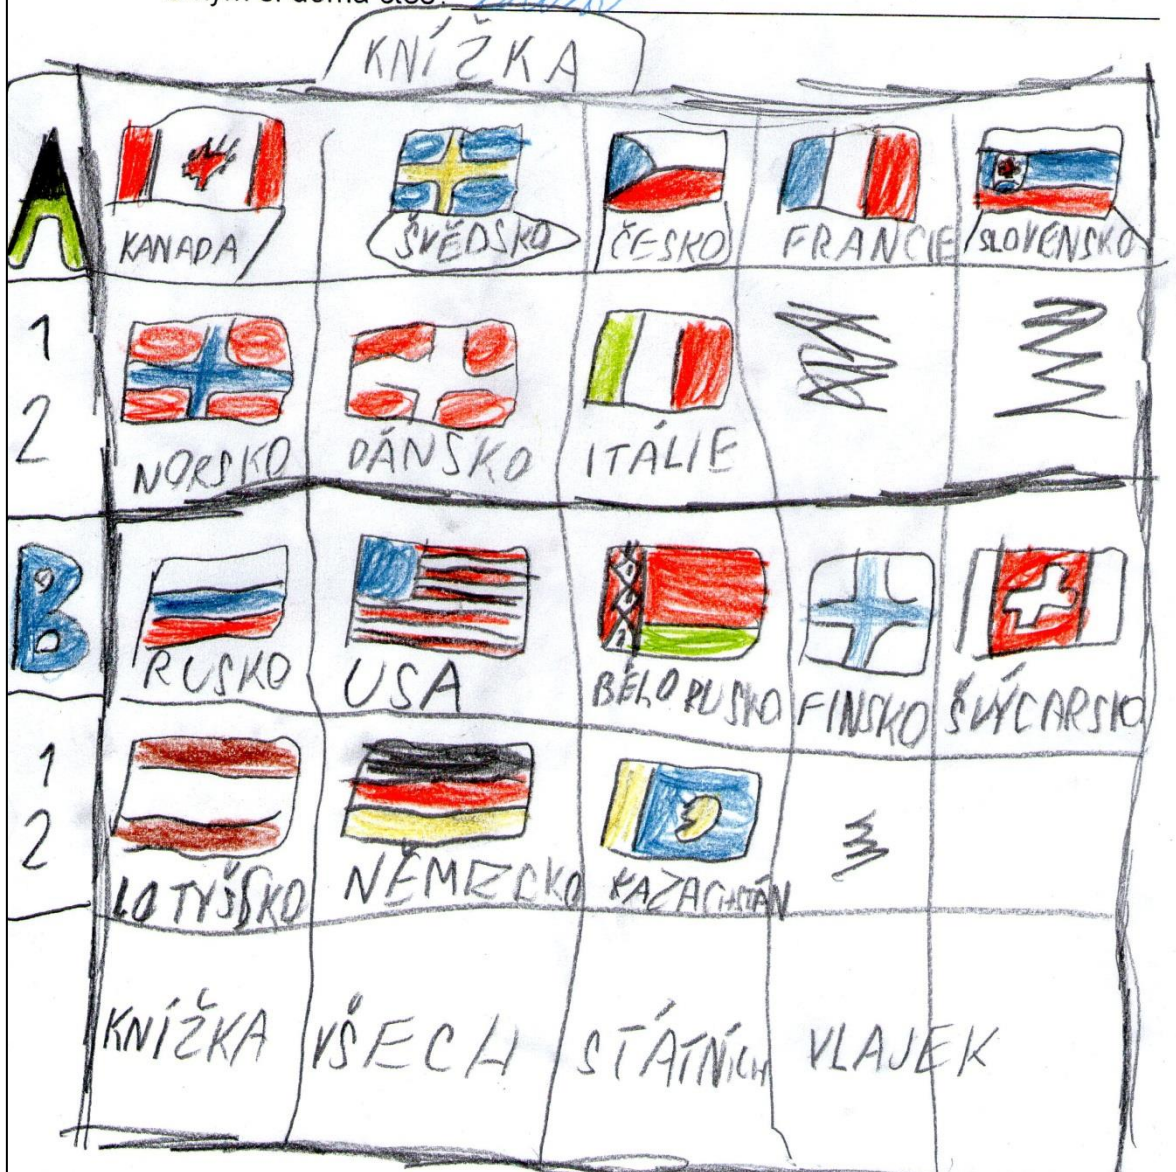 doma
KNÍŽKA
A
KANADA ŠVĚDSKO ČESKO FRANCIE SLOVENSKO
1
2
NORSKO DÁNSKO ITÁLIE
B
RUSKO USA BĚLORUSKO FINSKO ŠVÝCARSKO
1
2
LOTYŠSKO NĚMECKO KAZACHSTÁN
KNÍŽKA VŠECH STÁTNÍCH VLAJEK